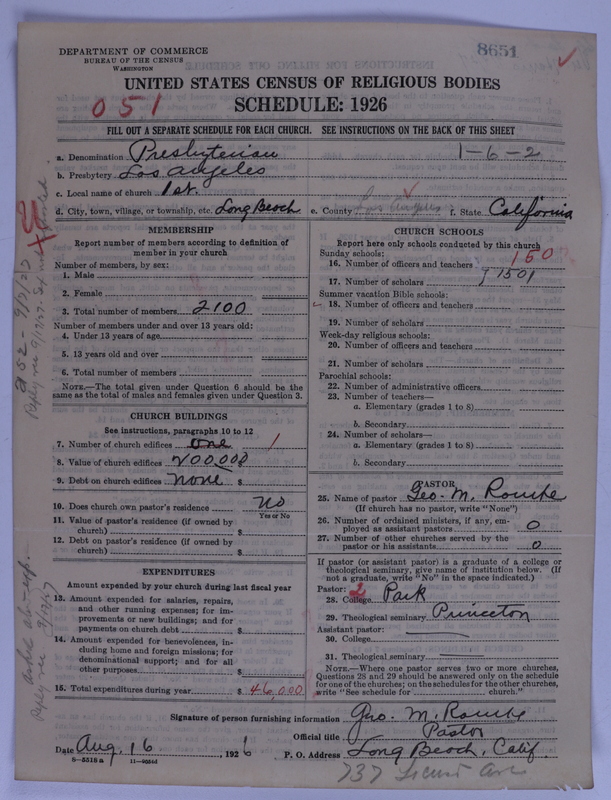 DEPARTMENT OF COMMERCE
BUREAU OF THE CENSUS
WASHINGTON
8651
UNITED STATES CENSUS OF RELIGIOUS BODIES
051
SCHEDULE: 1926
FILL OUT A SEPARATE SCHEDULE FOR EACH CHURCH. SEE INSTRUCTIONS ON THE BACK OF THIS SHEET
a. Denomination Presbyterian 1-6-2
b. Presbytery Los Angeles
c. Local name of church 1st.
d. City, town, village, or township, etc. Long Beach e. County Los Angeles f. State California
MEMBERSHIP
Report number of members according to definition of member in your church
Number of members, by sex:
1. Male
2. Female
3. Total number of members 2100
Number of members under and over 13 years old:
4. Under 13 years of age
5. 13 years old and over
6. Total number of members
NOTE.—The total given under Question 6 should be the same as the total of males and females given under Question 3.
CHURCH BUILDINGS
See instructions, paragraphs 10 to 12
7. Number of church edifices one 1
8. Value of church edifices $ 200,000
9. Debt on church edifices $ none
10. Does church own pastor's residence No
Yes or No
11. Value of pastor's residence (if owned by church) $
12. Debt on pastor's residence (if owned by church) $
EXPENDITURES
Amount expended by your church during last fiscal year
13. Amount expended for salaries, repairs, and other running expenses; for improvements or new buildings; and for payments on church debt $
14. Amount expended for benevolences, including home and foreign missions; for denominational support; and for all other purposes $
15. Total expenditures during year $ 46,000
CHURCH SCHOOLS
Report here only schools conducted by this church
Sunday schools:
16. Number of officers and teachers 150
17. Number of scholars 1501
Summer vacation Bible schools:
18. Number of officers and teachers
19. Number of scholars
Week-day religious schools:
20. Number of officers and teachers
21. Number of scholars
Parochial schools:
22. Number of administrative officers
23. Number of teachers—
a. Elementary (grades 1 to 8)
b. Secondary
24. Number of scholars—
a. Elementary (grades 1 to 8)
b. Secondary
PASTOR
25. Name of pastor Geo. M. Rourke
(If church has no pastor, write "None")
26. Number of ordained ministers, if any, employed as assistant pastors 0
27. Number of other churches served by the pastor or his assistants 0
If pastor (or assistant pastor) is a graduate of a college or theological seminary, give name of institution below. (If not a graduate, write "No" in the space indicated.)
Pastor: 2
28. College Park
29. Theological seminary Princeton
Assistant pastor:
30. College
31. Theological seminary
NOTE.—Where one pastor serves two or more churches, Questions 28 and 29 should be answered only on the schedule for one of the churches; on the schedules for the other churches, write "See schedule for church."
Signature of person furnishing information Geo. M. Rourke
Official title Pastor
Date Aug. 16, 1926 P. O. Address Long Beach, Calif.
8—5518a 11—9054d
737 Locust Ave